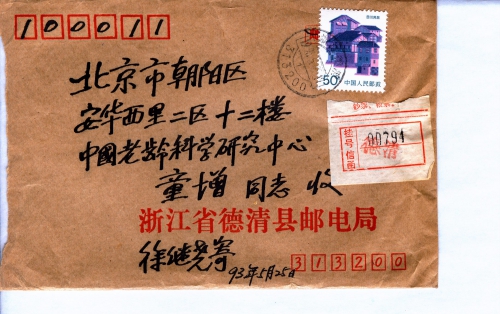 100011
北京市朝阳区
安华西里二区十二楼
中國老龄科学研究中心
童增 同志 收
浙江省德清县邮电局
徐继尧寄
93年5月25日
313200
50
中国人民邮政
313200
挂号信函
00794
德清